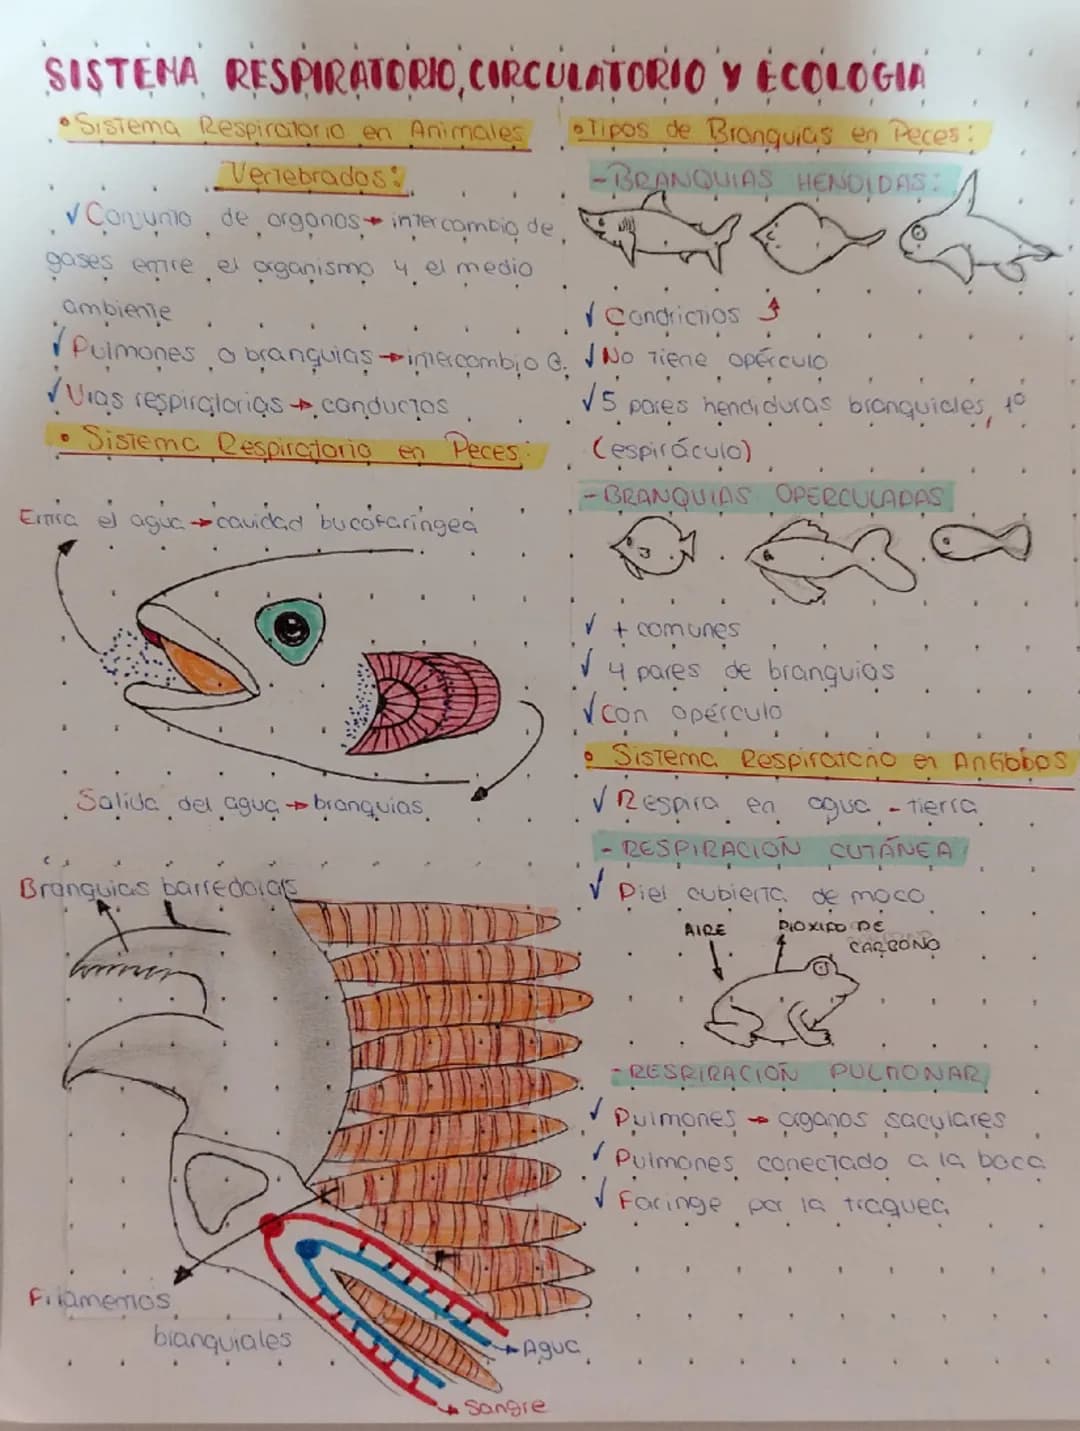 SISTEMA RESPIRATORIO, CIRCULATORIO Y ECOLOGIA
• Sistema Respiratorio en Animales
Vertebrados:
✓ Conjunto de organos → intercambio de
gases entre el organismo y el medio
ambiente
✓ Pulmones o branquias → intercambio G.
✓ Vias respiratorias → conductos
• Sistema Respiratorio en Peces:
Entra el agua → cavidad bucofaríngea
Salida del agua → branquias
Branquias barredoras
Filamentos
branquiales
Agua
Sangre
• Tipos de Branquias en Peces:
- BRANQUIAS HENDIDAS:
✓ Condrictios
✓ No tiene opérculo
✓ 5 pares hendiduras branquiales, 1º
(espiráculo)
- BRANQUIAS OPERCULADAS
✓ + comunes
✓ 4 pares de branquias
✓ Con opérculo
• Sistema Respiratorio en Anfibios
✓ Respira en agua - tierra
- RESPIRACIÓN CUTÁNEA
✓ Piel cubierta de moco
AIRE
DIOXIDO DE
CARBONO
- RESPIRACIÓN PULMONAR
✓ Pulmones → organos saculares
✓ Pulmones conectado a la boca
✓ Faringe por la traquea